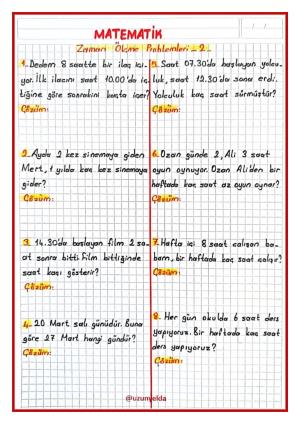 MATEMATİK
Zaman Ölçme Problemleri - 2 -
1. Dedem 8 saatte bir ilaç içi-
yor. İlk ilacını saat 10.00'da iç-
tiğine göre sonrakini kaçta içer?
Çözüm:
2. Ayda 2 kez sinemaya giden
Mert, 1 yılda kaç kez sinemaya
gider?
Çözüm:
3. 14.30'da başlayan film 2 sa-
at sonra bitti. Film bittiğinde
saat kaçı gösterir?
Çözüm:
4. 20 Mart salı günüdür. Buna
göre 27 Mart hangi gündür?
Çözüm:
5. Saat 07.30'da başlayan yolcu-
luk, saat 12.30'da sona erdi.
Yolculuk kaç saat sürmüştür?
Çözüm:
6. Ozan günde 2, Ali 3 saat
oyun oynuyor. Ozan Ali'den bir
haftada kaç saat az oyun oynar?
Çözüm:
7. Hafta içi 8 saat çalışan ba-
bam, bir haftada kaç saat çalışır?
Çözüm:
8. Her gün okulda 6 saat ders
yapıyoruz. Bir haftada kaç saat
ders yapıyoruz?
Çözüm:
@uzunyelda